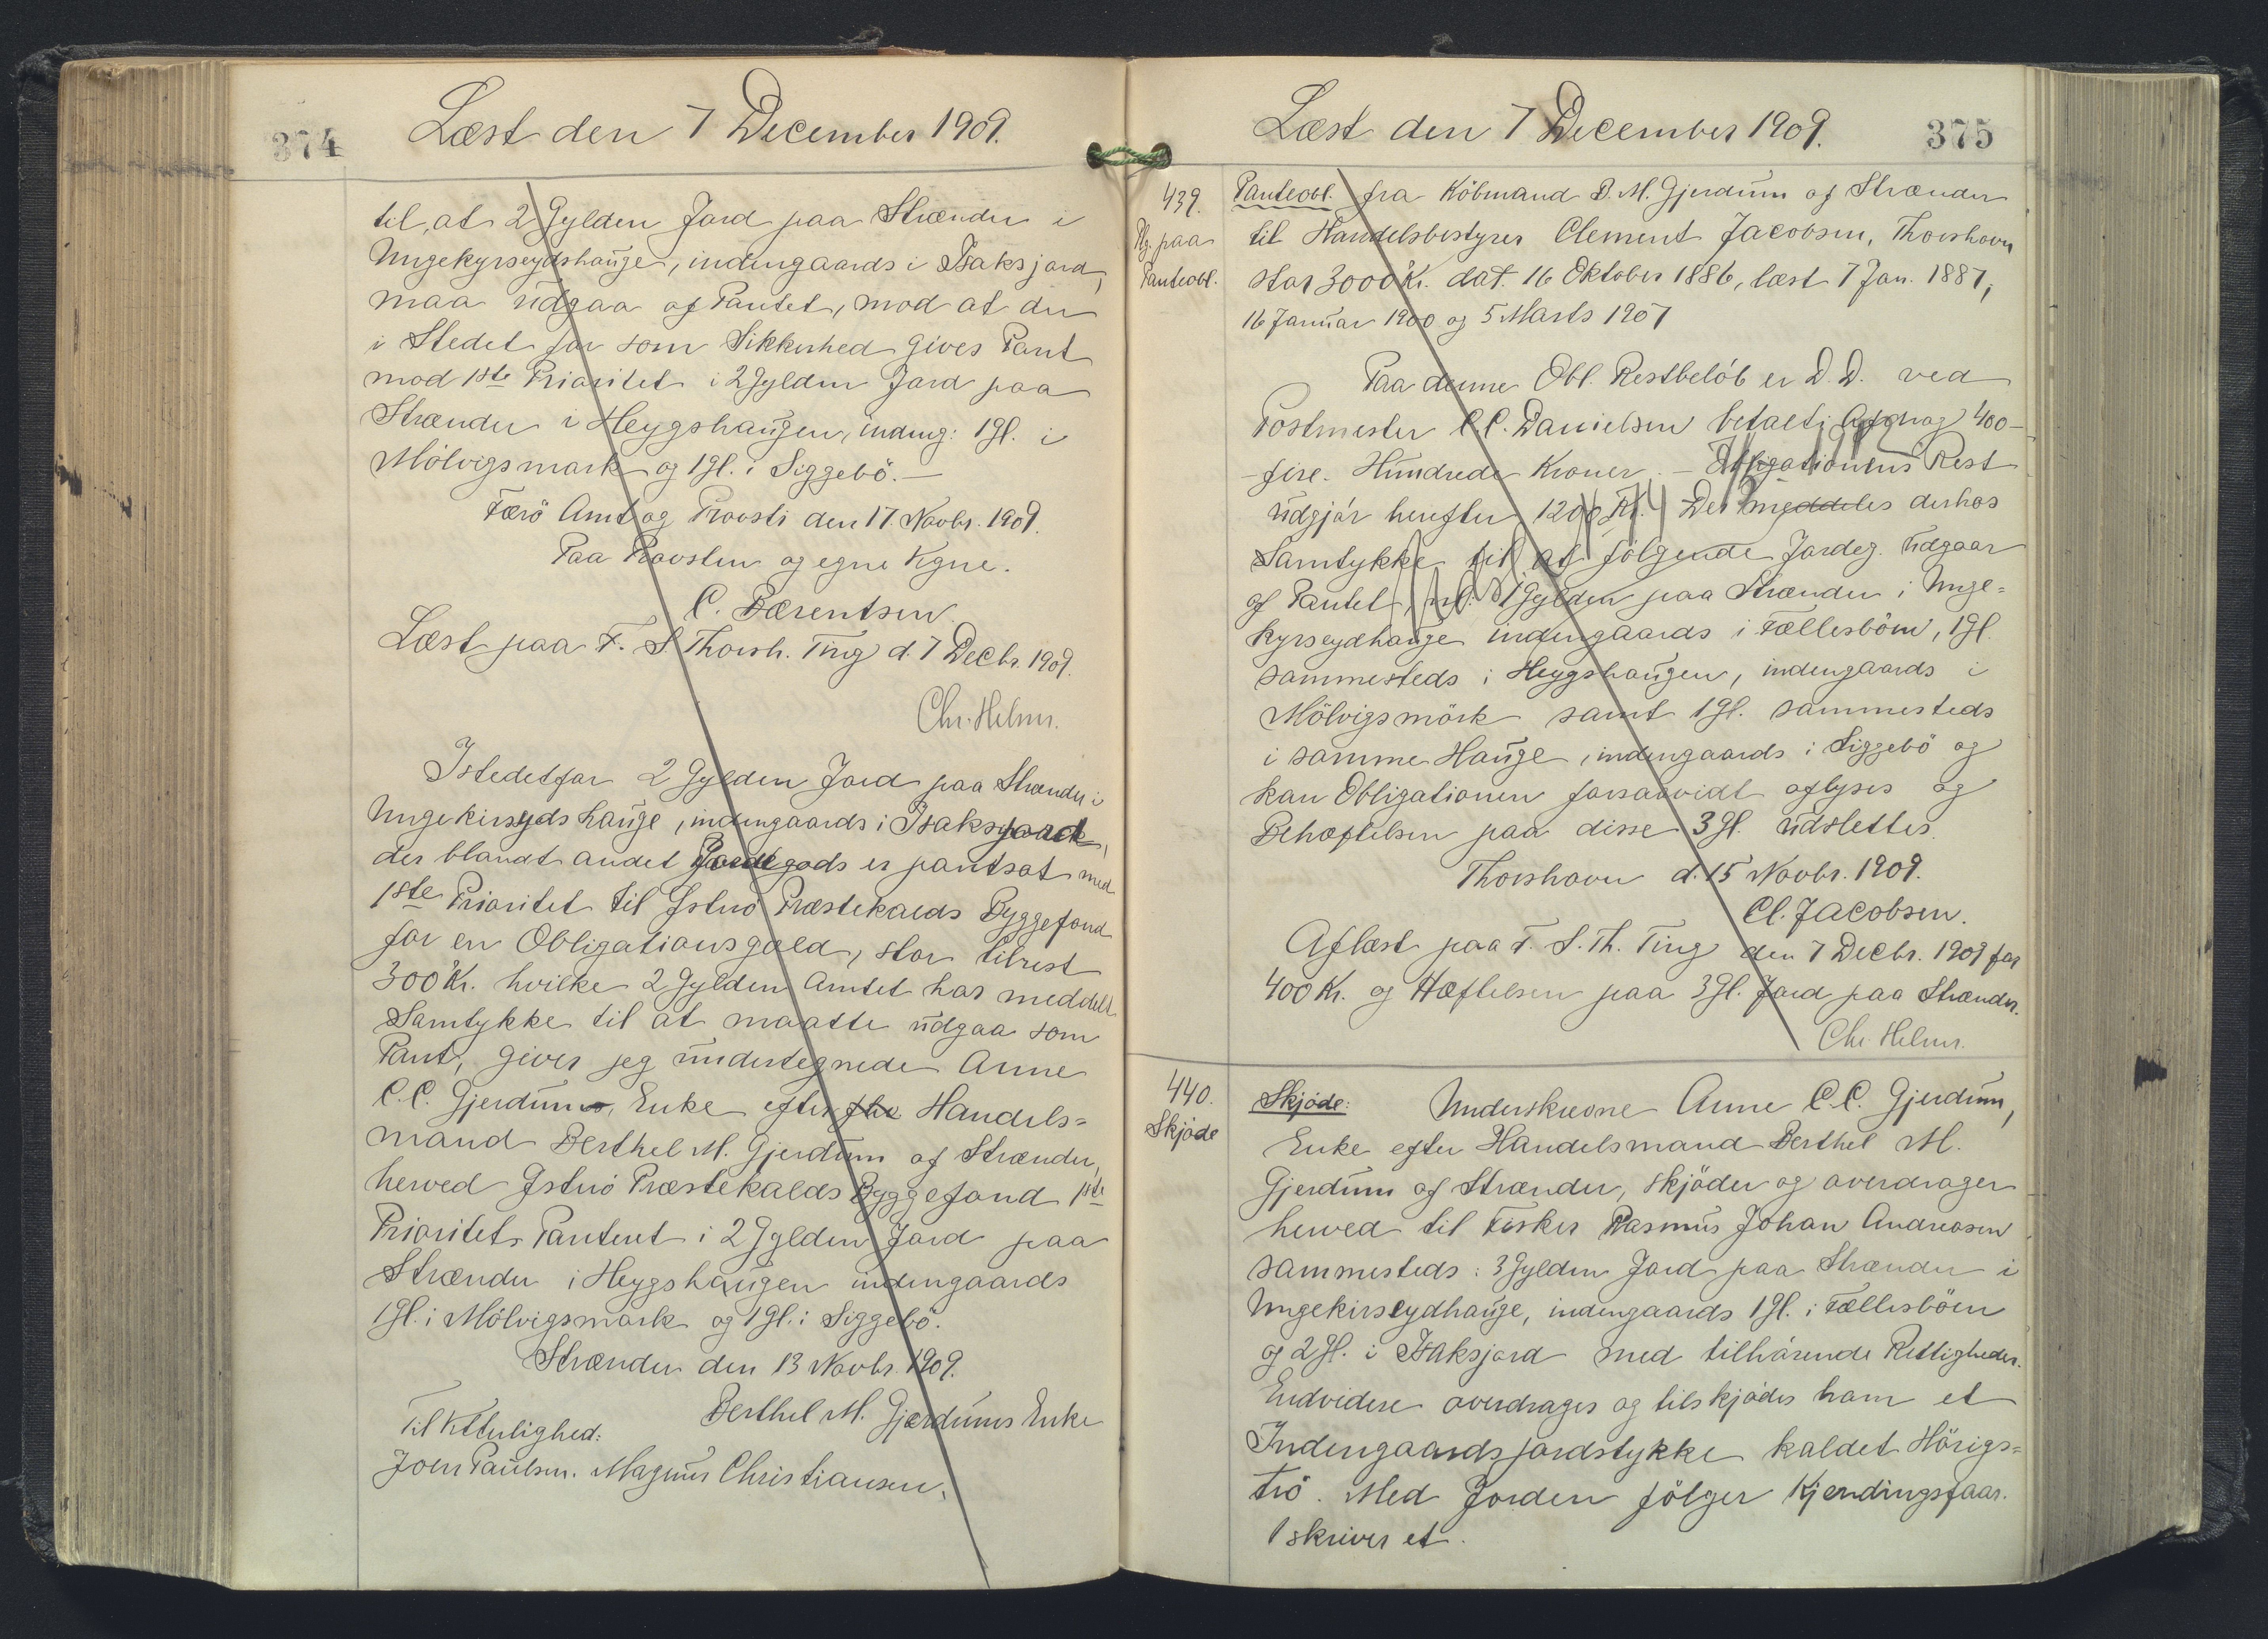 374
Læst den 7 December 1909.
til, at 2 Gylden Jord paa Strænder i
Ungekyrseydshauge, indengaards i Isaksjord,
maa udgaa af Pantet, mod at der
i Stedet for som Sikkerhed gives Pant
mod 1ste Prioritet i 2 Gylden Jord paa
Strænder i Heygshaugen, indeng: 1 Gl. i
Mölvigsmark og 1 Gl. i Siggebö.—
Færö Amt og Provsti den 17. Novbr. 1909.
Paa Provsten og egne Vgne.
C. Bærentsen.
Læst paa F. S Thorsh. Ting d. 7 Decbr. 1909.
Chr. Helms.
Istedetfor 2 Gylden Jord paa Strænder i
Ungekirseydshauge, indengaards i Isaksjord,
der blandt andet Jordegods er pantsat med
1ste Prioritet til Øströ Præstekalds Byggefond
for en Obligationsgæld, stor tilrest
300 Kr. hvilke 2 Gylden Amtet har meddelt
Samtykke til at maatte udgaa som
Pant, giver jeg undertegnede Anne
C. C. Gjerdum, Enke efter Handels=
mand Berthel M. Gjerdum af Strænder,
herved Øströ Præstekalds Byggefond 1ste
Prioritets Panteret i 2 Gylden Jord paa
Strænder i Heygshaugen indengaards
1 Gl. i Mölvigsmark og 1 Gl. i Siggebö.
Strænder den 13 Novbr. 1909.
Berthel M. Gjærdums Enke
Til Vitterlighed:
Joen Paulsen. Magnus Christiansen.
Læst den 7 December 1909.
375
439.
Paa
Panteobl.
Panteobl. fra Köbmand B. M. Gjerdum af Strænder
til Handelsbestyrer Clement Jacobsen, Thorshavn
stor 3000 Kr. dat. 16 Oktober 1886, læst 7 Jan. 1887,
16 Januar 1900 og 5 Marts 1907
Paa denne Obl. Restbelöb er D. D. ved
Postmester C. C. Danielsen betalt i Afdrag 400-
-fire Hundrede Kroner.— Obligationens Rest
udgjör herefter 1200 Kr. Der meddeles derhos
Samtykke til at fölgende Jordeg. udgaar
af Pantet, nl. 1 Gylden paa Strænder i Unge=
kyrseydhauge indengaards i Fællesböen, 1 Gl.
sammesteds i Heygshaugen, indengaards i
Mölvigsmörk samt 1 Gl. sammesteds
i samme Hauge, indengaards i Siggebö og
kan Obligationen forsaavidt aflyses og
Behæftelsen paa disse 3 Gl. udslettes.
Thorshavn d. 15 Novbr. 1909.
Cl. Jacobsen.
Aflæst paa F. S. Th. Ting den 7 Decbr. 1909 for
400 Kr. og Hæftelsen paa 3 Gl. Jord paa Strænder.
Chr. Helms.
440.
Skjöde
Skjöde: Underskrevne Anne C. C. Gjerdum,
Enke efter Handelsmand Berthel M.
Gjerdum af Strænder, skjöder og overdrager
herved til Fisker Rasmus Johan Andreasen
sammesteds: 3 Gylden Jord paa Strænder i
Ungekirseydhauge, indengaards 1 Gl. i Fællesböen
og 2 Gl. i Isaksjord med tilhörende Rettigheder.
Endvidere overdrages og tilskjödes ham et
Indengaardsjordstykke kaldet Hörigs=
trö. Med Jorden fölger Kjendingsfaar.
1 skriver et.